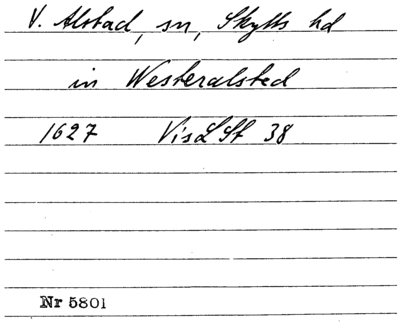 V. Alstad, sn, Skytts hd
in Westeralsted
1627 VisLSt 38
Nr 5801